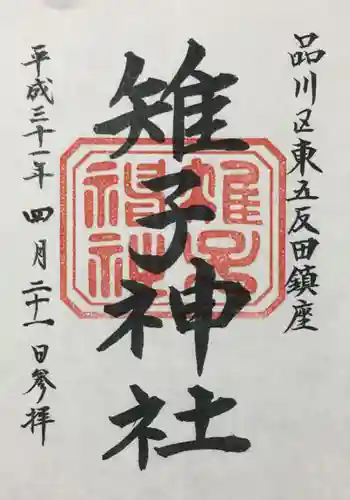 品川区東五反田鎮座
雉子神社
雉子神社
平成三十一年 四月二十一日参拝